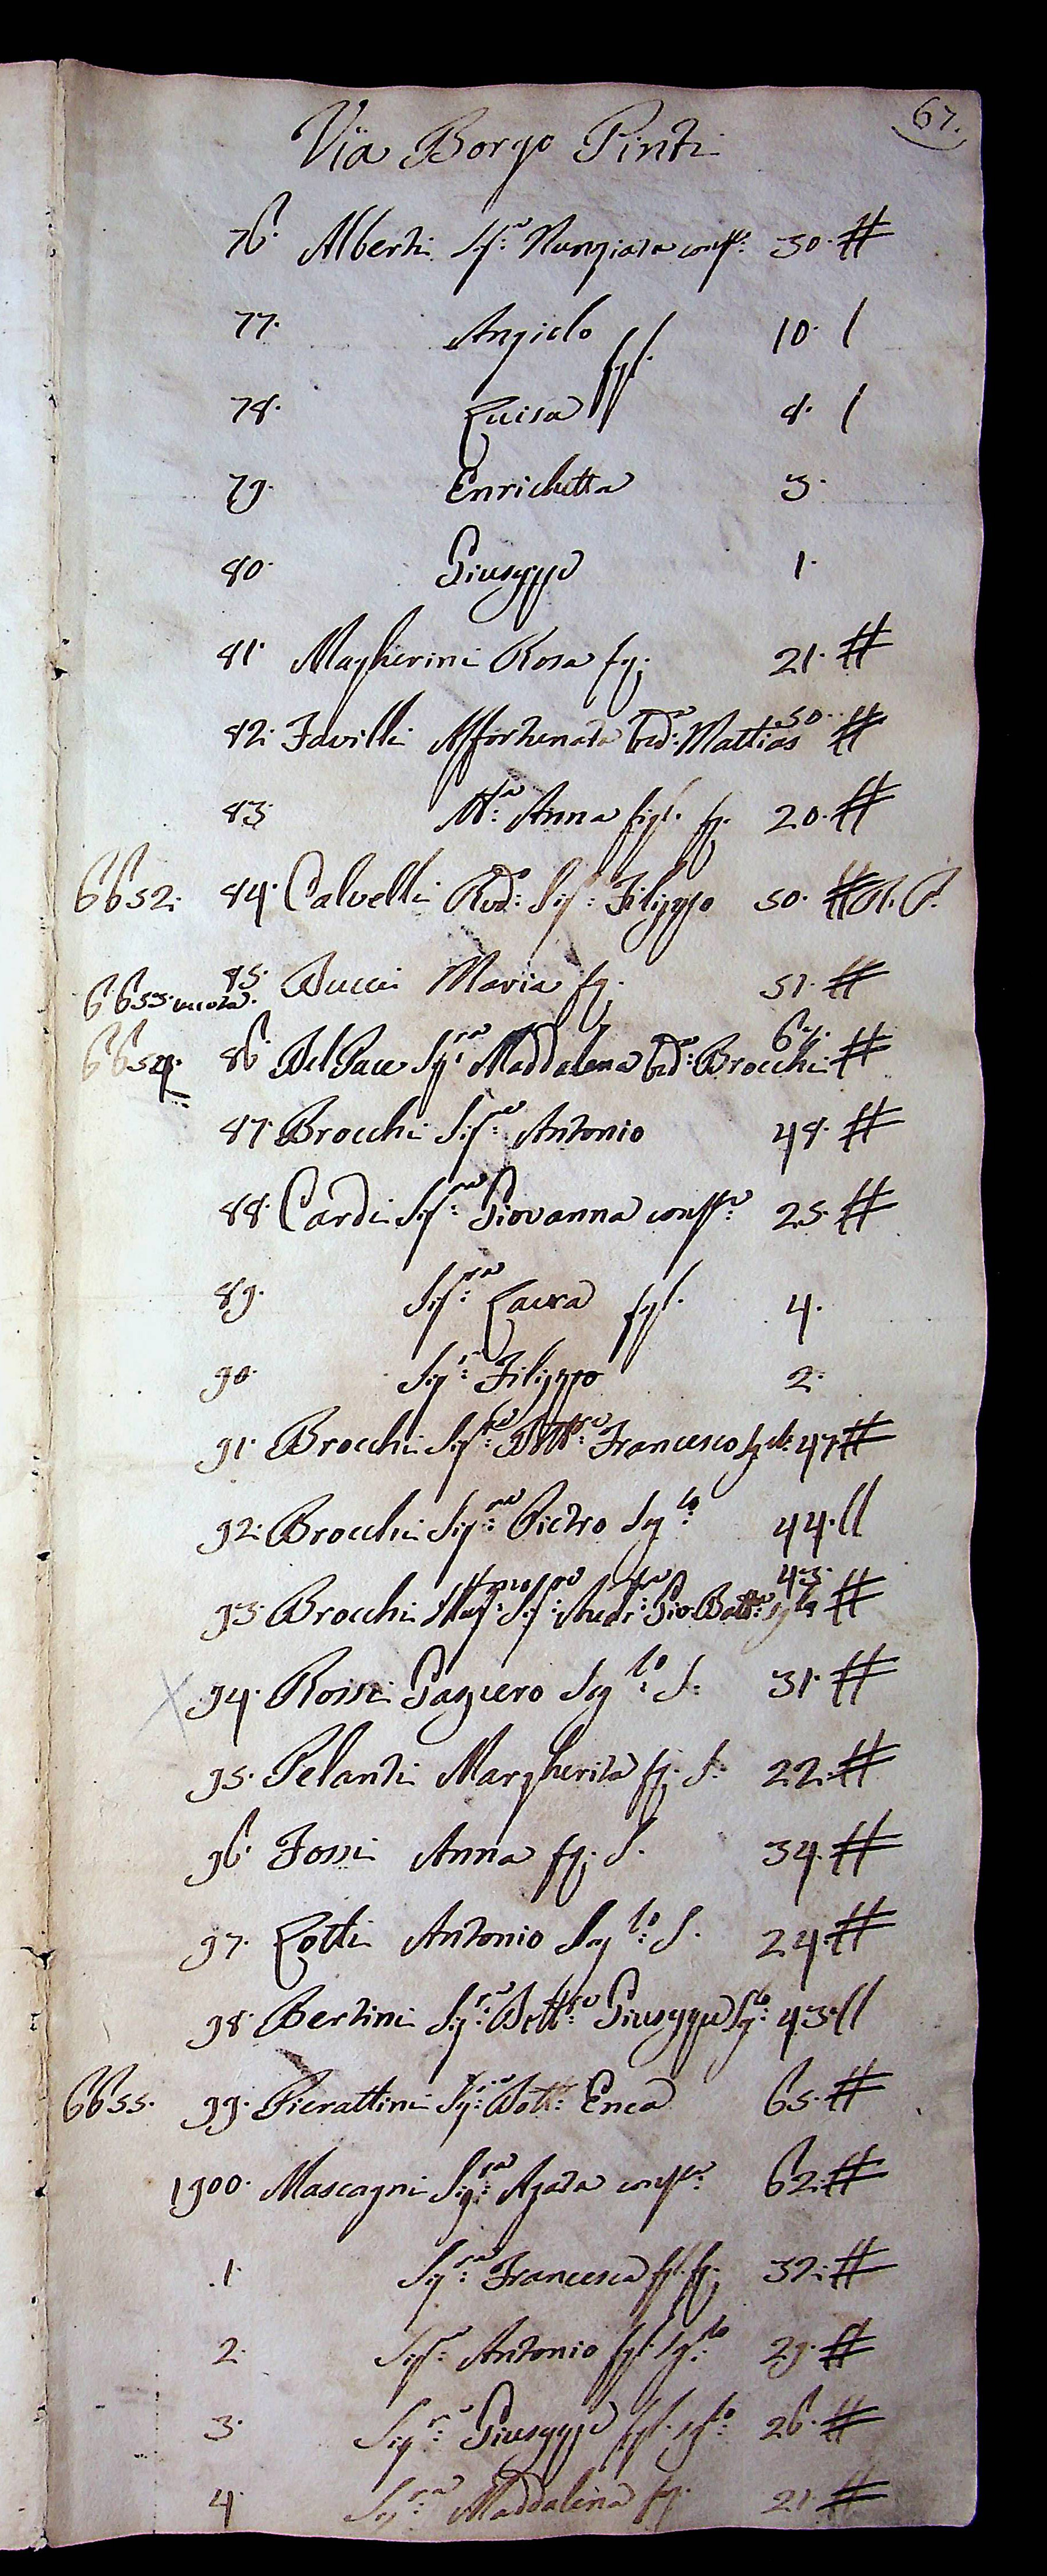 67.
Via Borgo Pinti
76. Alberti Sig:ra Nunziata cons:te 30. #
77. Angiolo 10. /
figl.
78. Luisa 8. /
79. Enrichetta 3.
80. Giuseppe 1.
81. Magherini Rosa fg: 21. #
82. Favilli Affortunata ved:a Mattias 50. #
83. M:a Anna figl. fg. 20. #
6652. 84. Calvelli Rvd: Sig: Filippo 50. # P.
6653. vuota. 85. Bucci Maria fg. 51. #
6654. 86. Del Pace Sig:ra Maddalena ved: Brocchi 64. #
87. Brocchi Sig:re Antonio 48. #
88. Cardi Sig:ra Giovanna cons:te 25. #
89. Sig:ra Laura figl. 4.
90. Sig:r Filippo 2.
91. Brocchi Sig:re Dott:re Francesco 47. #
92. Brocchi Sig:re Pietro Sg:lo 44. //
93. Brocchi Gio Batt:a sg:lo 43. #
94. Rossi Gaspero Sg:lo S: 31. #
95. Pelanti Margherita fg. S: 22. #
96. Fossi Anna fg. S. 34. #
97. Lotti Antonio Sg:lo S. 24. #
98. Bertini Sig:re Dott:re Giuseppe Sg:lo 43. //
6655. 99. Pierattini Sig:re Dott: Enea 65. #
1900. Mascagni Sig:ra Agata cons:te 62. #
.1. Sig:ra Francesca fgl. fg. 32. #
2. Sig:re Antonio fgl. sg:lo 29. #
3. Sig:re Giuseppe fgl. sg:lo 26. #
4. Sig:ra Maddalena fg. 21. #